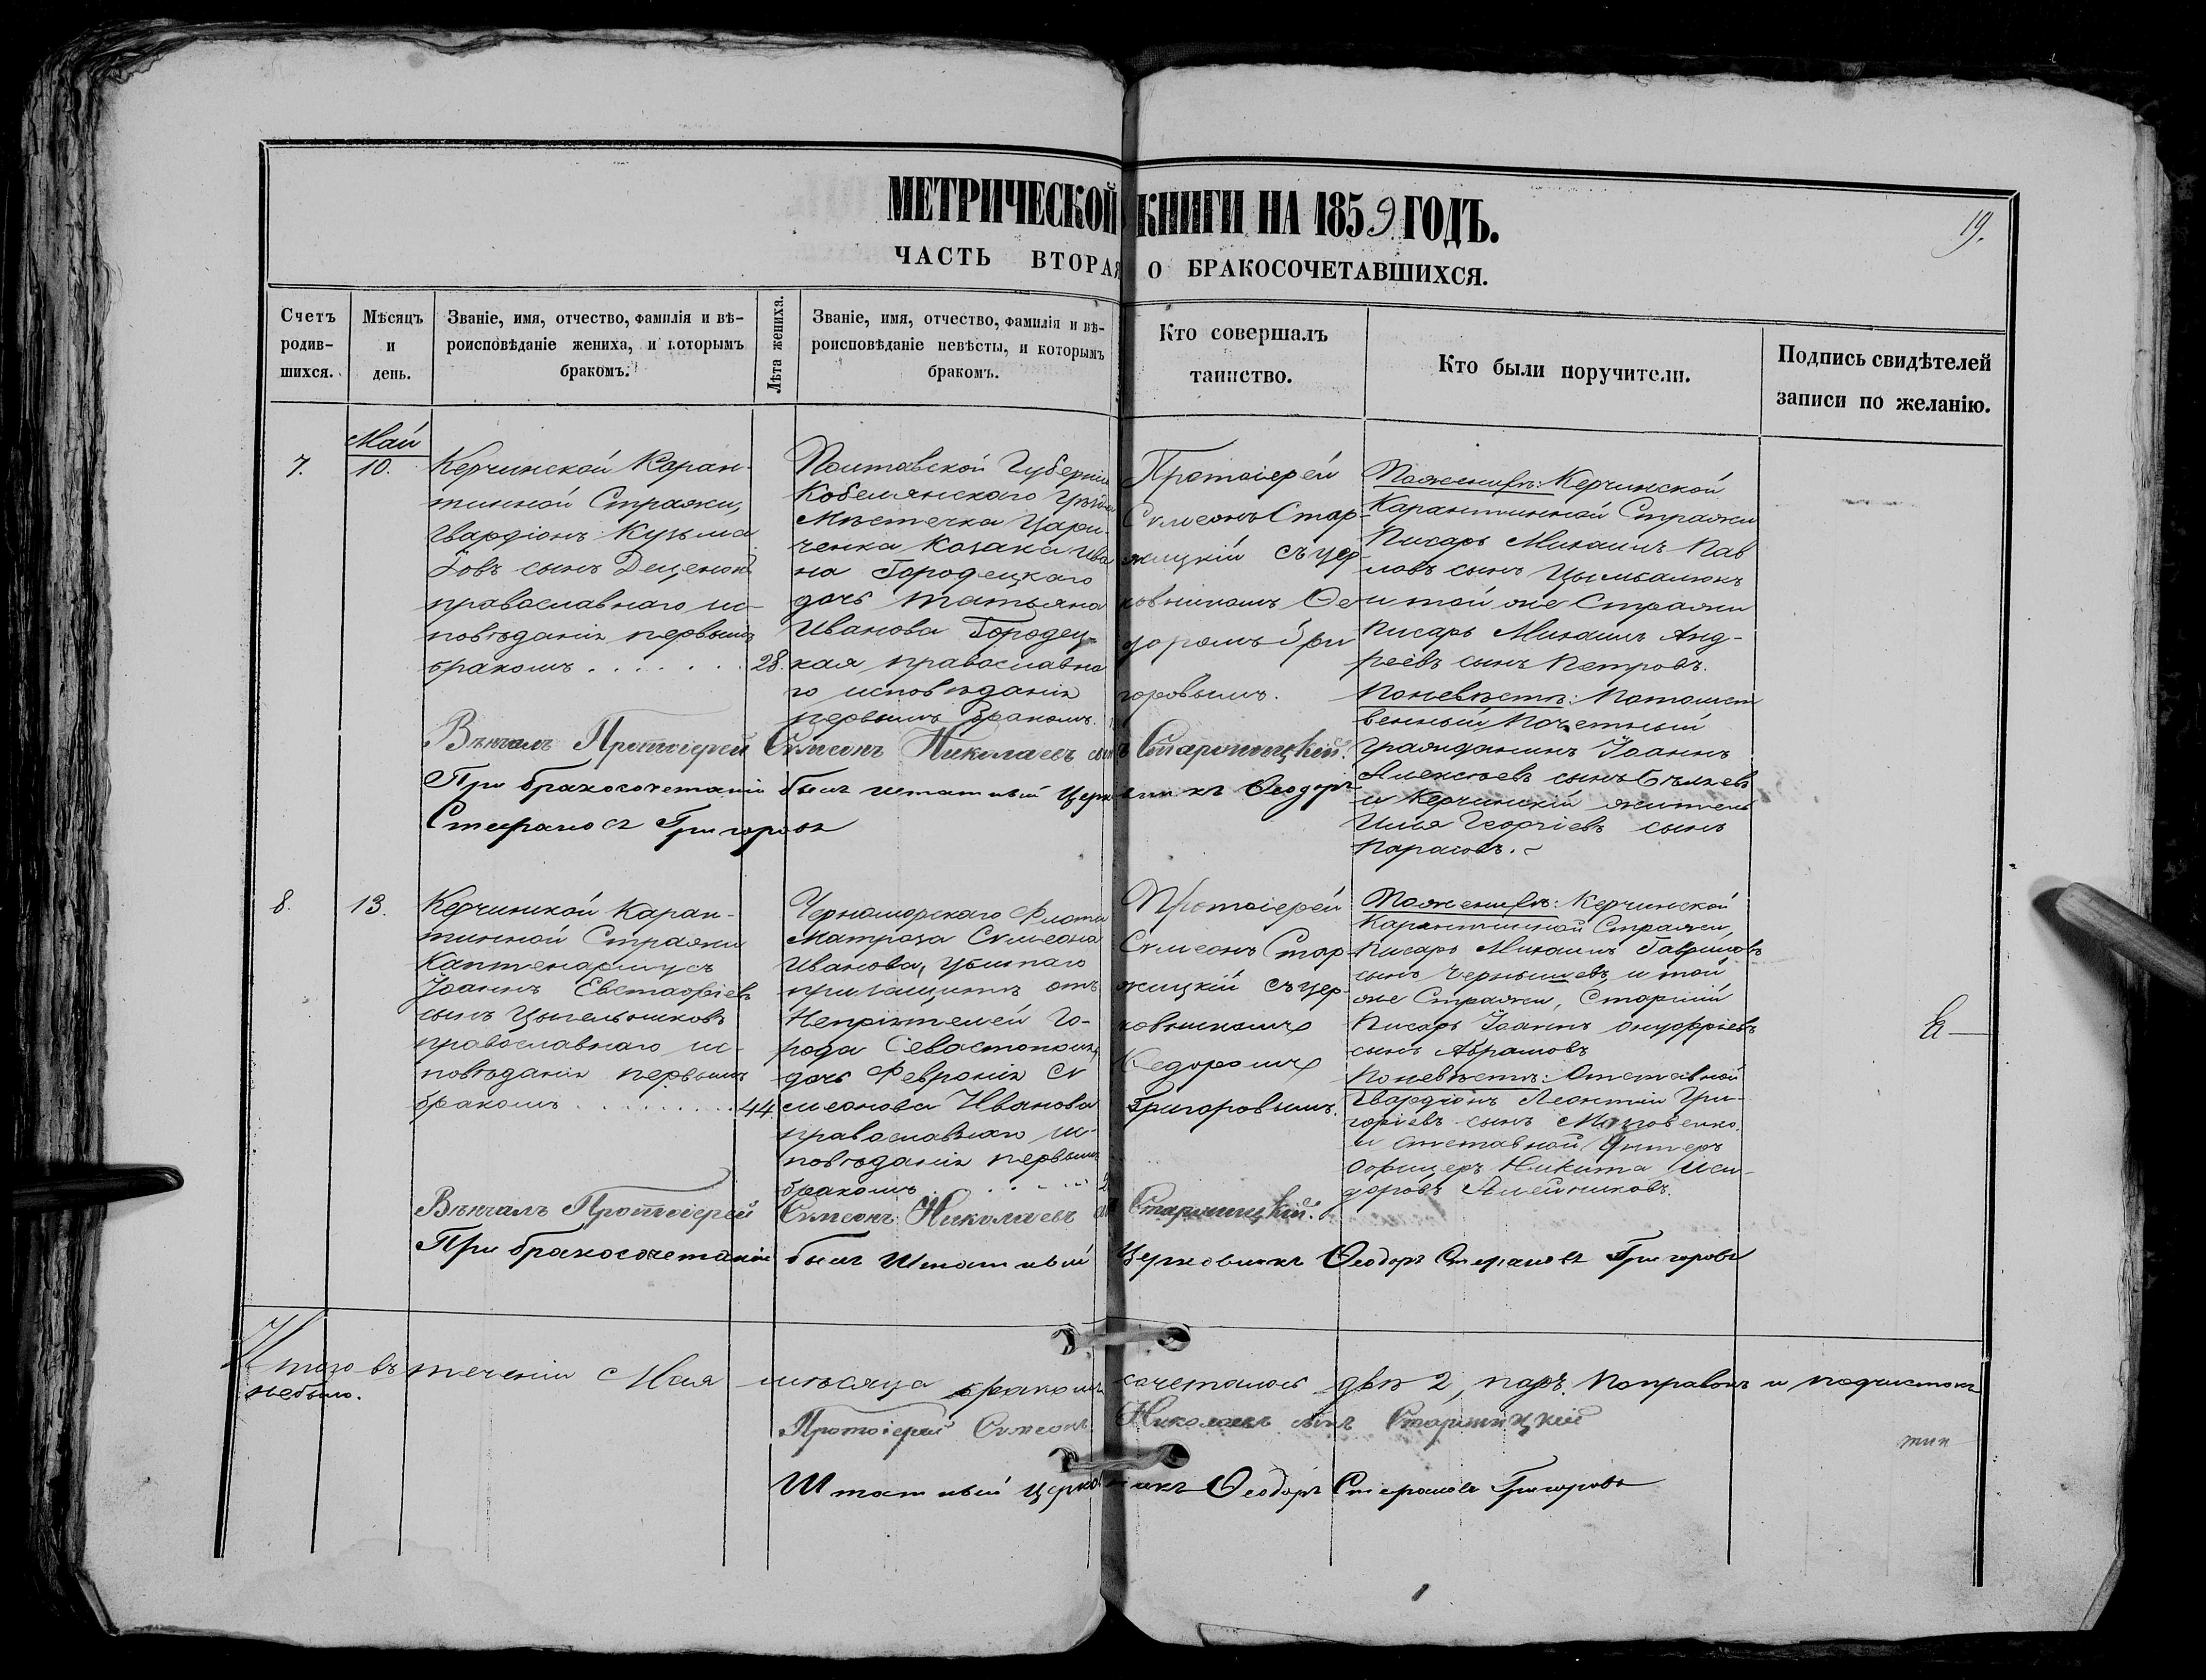 МЕТРИЧЕСКОЙ КНИГИ НА 1859 ГОДЪ.
19.
ЧАСТЬ ВТОРАЯ О БРАКОСОЧЕТАВШИХСЯ.
Счетъ
родив-
шихся.
Мѣсяцъ
и
день.
Званіе, имя, отчество, фамилія и вѣ-
роисповѣданіе жениха, и которымъ
бракомъ.
Лѣта жениха.
Званіе, имя, отчество, фамилія и вѣ-
роисповѣданіе невѣсты, и которымъ
бракомъ.
Кто совершалъ
таинство.
Кто были поручители.
Подпись свидѣтелей
записи по желанію.
7.
Май
10.
Керчинской Каран-
тинной Стражи,
Гвардіонъ Кузьма
Іовъ сынъ
православнаго ис-
повѣданія первымъ
бракомъ . . . . . . .
28.
Полтавской Губерніи
Кобелянскаго Уѣзда
Мѣстечка Цари-
ченка Козака Ива
на Городецкаго
дочь Татьяна
Иванова Городец-
кая православна
го исповѣданія
первымъ бракомъ.
Протоіерей
Симеонъ Стар-
жицкій съ цер
ковникомъ Ѳе
доромъ Гри
горовымъ.
Поженихѣ: Керчинской
Карантинной Стражи
Писарь Михаилъ Пав
ловъ сынъ Цымбалюкъ
и той же Стражи
Писарь Михаилъ Анд-
реевъ сынъ Петровъ.
Поневѣстѣ: Потомст
венный Почетный
гражданинъ Іоаннъ
Алексѣевъ сынъ
и Керчинскій житель
Илья Георгіевъ сынъ
Вѣнчалъ Протоіерей Симеонъ Николаевъ сынъ Старжицкій.
При бракосочетаніи былъ штатный Церковникъ Ѳеодоръ
Стефановъ Григоровъ
8.
13.
Керчинской Каран-
тинной Стражи
Каптенармусъ
Іоаннъ Евстафіевъ
сынъ
православнаго ис-
повѣданія первымъ
бракомъ . . . . . . . . .
44
Черноморскаго Флота
Матроза Симеона
Иванова, убитаго
при защитѣ отъ
Непріятелей Го-
рода Севастополя,
дочь Февронія Си
меонова Иванова
православнаго ис-
повѣданія первымъ
бракомъ
Протоіерей
Симеонъ Стар-
жицкій съ цер-
ковникомъ
Ѳедоромъ
Григоровымъ.
Поженихѣ: Керчинской
Карантинной Стражи,
Писарь Михаилъ Гавриловъ
сынъ Чернышевъ, и той
же Стражи, Старшій
Писарь Іоаннъ Онуфріевъ
сынъ Абрамовъ
Поневѣстѣ: Отставной
Гвардіонъ Леонтій Гри-
горіевъ сынъ
и отставной Унтеръ
Офицеръ Никита Иси-
доровъ Алейниковъ.
Вѣнчалъ Протоіерей Симеонъ Николаевъ Старжицкій.
При бракосочетаніи былъ Штатный Церковникъ Ѳеодоръ Стефановъ Григоровъ
Итого въ теченіи Мая мѣсяца бракомъ сочеталось двѣ 2, паръ. Поправокъ и подчистокъ
небыло.
Протоіерей Симеонъ Николаевъ сынъ Старжицкій
Штатный церковникъ Ѳеодоръ Стефановъ Григоровъ